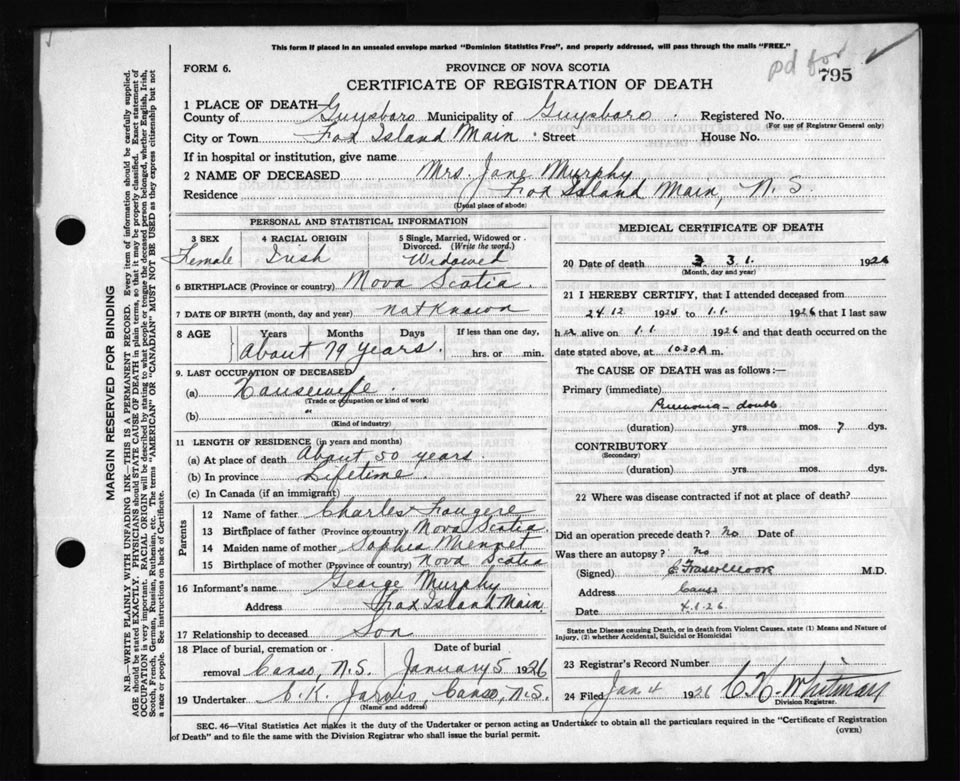 This form if placed in an unsealed envelope marked "Dominion Statistics Free", and properly addressed, will pass through the mails "FREE."
pd for
795
FORM 6.
PROVINCE OF NOVA SCOTIA
CERTIFICATE OF REGISTRATION OF DEATH
1 PLACE OF DEATH—
County of Guysboro Municipality of Guysboro Registered No.
(For use of Registrar General only)
City or Town Fox Island Main Street House No.
If in hospital or institution, give name
2 NAME OF DECEASED Mrs. Jane Murphy
Residence Fox Island Main, N.S.
(Usual place of abode)
PERSONAL AND STATISTICAL INFORMATION
3 SEX 4 RACIAL ORIGIN 5 Single, Married, Widowed or Divorced. (Write the word.)
Female Irish Widowed
6 BIRTHPLACE (Province or country) Nova Scotia.
7 DATE OF BIRTH (month, day and year) not Known
8 AGE Years Months Days If less than one day,
About 79 years. hrs. or min.
9. LAST OCCUPATION OF DECEASED
(a) Housewife.
(Trade or occupation or kind of work)
(b) "
(Kind of industry)
11 LENGTH OF RESIDENCE (in years and months)
(a) At place of death About 50 years.
(b) In province Lifetime.
(c) In Canada (if an immigrant)
Parents
12 Name of father Charles Fougere
13 Birthplace of father (Province or country) Nova Scotia.
14 Maiden name of mother Sophia
15 Birthplace of mother (Province or country) Nova Scotia
16 Informant's name George Murphy
Address Fox Island Main,
17 Relationship to deceased Son
18 Place of burial, cremation or Date of burial
removal Canso, N.S. January 5 1926
19 Undertaker C.K. Jarvis, Canso, N.S.
(Name and address)
MEDICAL CERTIFICATE OF DEATH
20 Date of death 3. 1. 1926
(Month, day and year)
21 I HEREBY CERTIFY, that I attended deceased from
24 12 1925 to 1.1. 1926 that I last saw
h alive on 1.1 1926 and that death occurred on the
date stated above, at 10.30 A m.
The CAUSE OF DEATH was as follows:—
Primary (immediate)
Pneumonia - double
(duration) yrs. mos. 7 dys.
CONTRIBUTORY
(Secondary)
(duration) yrs. mos. dys.
22 Where was disease contracted if not at place of death?
Did an operation precede death? No Date of
Was there an autopsy? No
(Signed) M.D.
Address Canso
Date 4.1.26.
State the Disease causing Death, or in death from Violent Causes, state (1) Means and Nature of
Injury, (2) whether Accidental, Suicidal or Homicidal
23 Registrar's Record Number
24 Filed Jan 4 1926 C.H. Whitman
Division Registrar.
SEC. 46—Vital Statistics Act makes it the duty of the Undertaker or person acting as Undertaker to obtain all the particulars required in the "Certificate of Registration
of Death" and to file the same with the Division Registrar who shall issue the burial permit.
(OVER)
MARGIN RESERVED FOR BINDING
N.B.—WRITE PLAINLY WITH UNFADING INK—THIS IS A PERMANENT RECORD. Every item of information should be carefully supplied.
AGE should be stated EXACTLY. PHYSICIANS should STATE CAUSE OF DEATH in plain terms, so that it may be properly classified. Exact statement of
OCCUPATION is very important. RACIAL ORIGIN will be described by stating to what people or tongue the deceased person belonged, whether English, Irish,
Scotch, French, German, Russian, Ruthenian, etc. The terms "AMERICAN" OR "CANADIAN" MUST NOT BE USED as they express citizenship but not
a race or people. See instructions on back of Certificate.